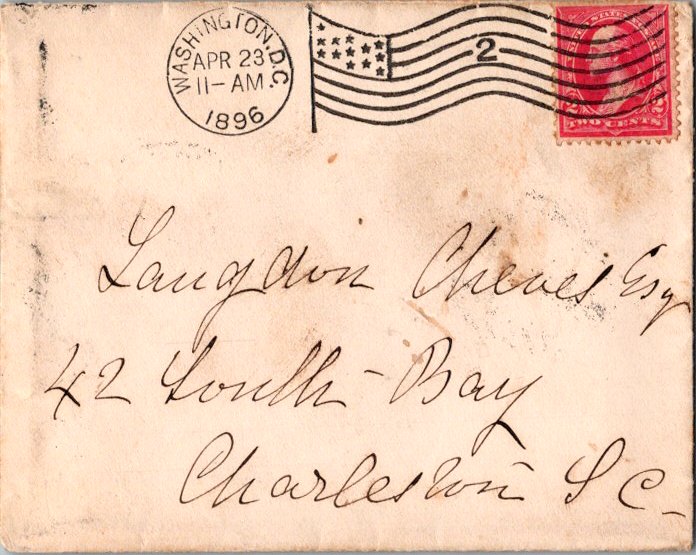 WASHINGTON, D.C.
APR 23
11-AM.
1896
2
2 2
TWO CENTS
Langdon Cheves Esq
42 South-Bay
Charleston S C-